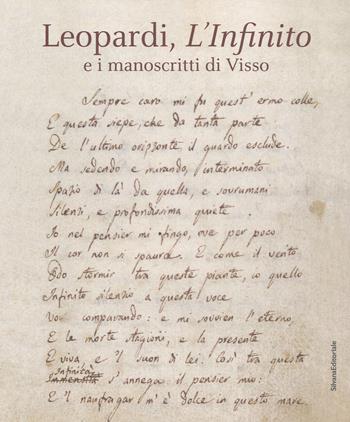 Leopardi, L'Infinito
e i manoscritti di Visso
Sempre caro mi fu quest' ermo colle,
E questa siepe, che da tanta parte
De l'ultimo orizzonte il guardo esclude.
Ma sedendo e mirando, interminato
Spazio di là da quella, e sovrumani
Silenzi, e profondissima quiete
Io nel pensier mi fingo, ove per poco
Il cor non si spaura. E come il vento
Odo stormir tra queste piante, io quello
Infinito silenzio a questa voce
Vo comparando: e mi sovvien l'eterno,
E le morte stagioni, e la presente
E viva, e 'l suon di lei. Così tra questa
Infinità
Immensità s'annega il pensier mio:
E 'l naufragar m' è dolce in questo mare.
SilvanaEditoriale